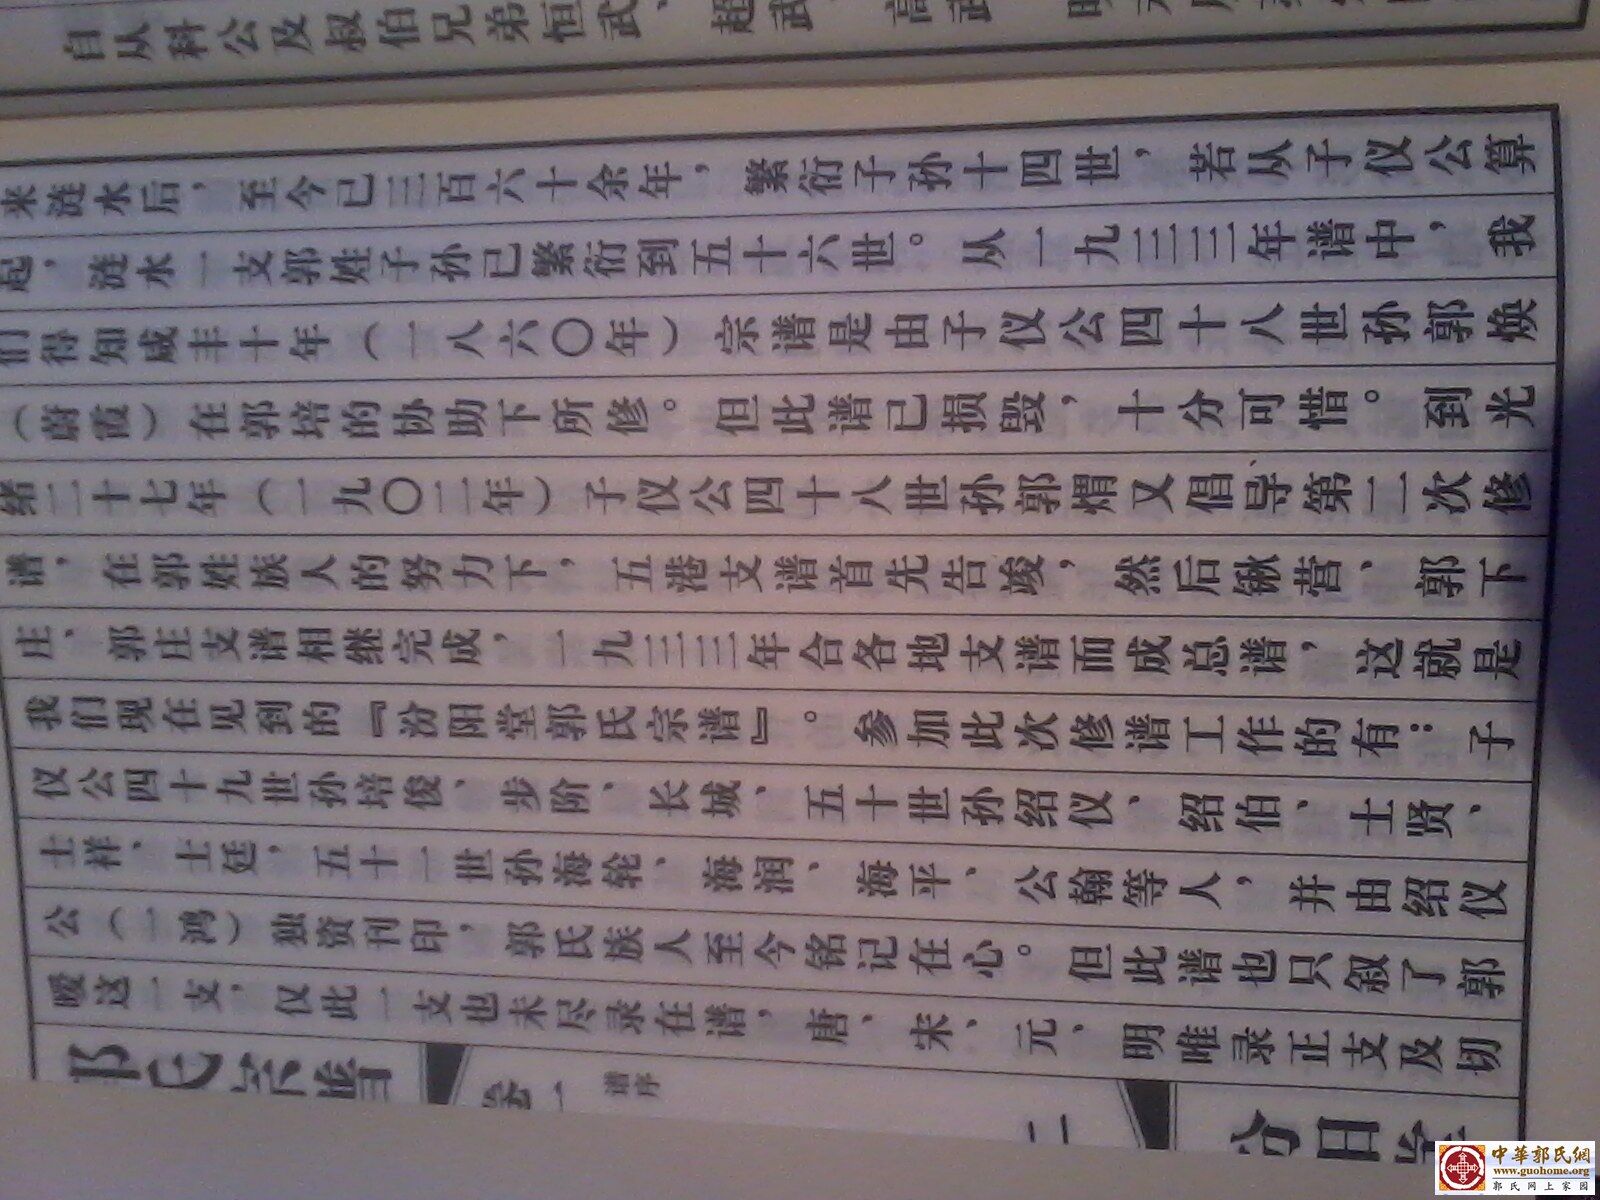 自从科公及叔伯兄弟恒武、超武、高武
来涟水后，至今已三百六十余年，繁衍子孙十四世，若从子仪公算
起，涟水一支郭姓子孙已繁衍到五十六世。从一九三三年谱中，我
们得知咸丰十年（一八六〇年）宗谱是由子仪公四十八世孙郭焕
（蔚霞）在郭培的协助下所修。但此谱已损毁，十分可惜。到光
绪二十七年（一九〇二年）子仪公四十八世孙郭煟又倡导第二次修
谱，在郭姓族人的努力下，五港支谱首先告竣，然后锹营、郭下
庄、郭庄支谱相继完成，一九三三年合各地支谱而成总谱，这就是
我们现在见到的『汾阳堂郭氏宗谱』。参加此次修谱工作的有：子
仪公四十九世孙培俊、步阶、长城、五十世孙绍仪、绍伯、士贤、
士祥、士廷，五十一世孙海轮、海润、海平、公翰等人，并由绍仪
公（一鸿）独资刊印，郭氏族人至今铭记在心。但此谱也只叙了郭
暧这一支，仅此一支也未尽录在谱，唐、宋、元、明唯录正支及切
郭氏宗谱
卷一
谱序
二
中華郭氏網
www.guohome.org
郭氏网上家园